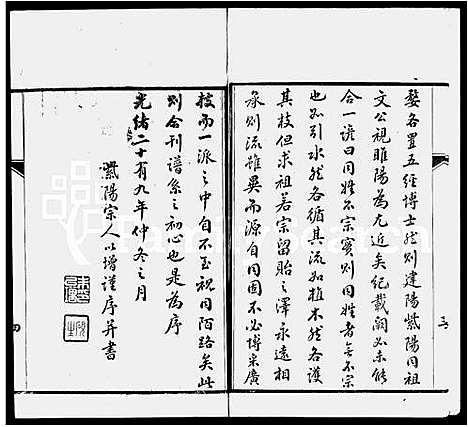 婺各置五經博士然則建陽紫陽同祖
文公視睢陽為尤近矣紀載闕必未能
合一諺曰同姓不宗實則同姓者無不宗
也如引水然各循其流如植木然各護
其枝但求祖若宗留貽之澤永遠相
承則流雖異而源自同固不必博采廣
搜而一派之中自不至視同陌路矣此
則合刊譜系之初心也是為序
光緒二十有九年仲冬之月
紫陽宗人以增謹序并書
三
四